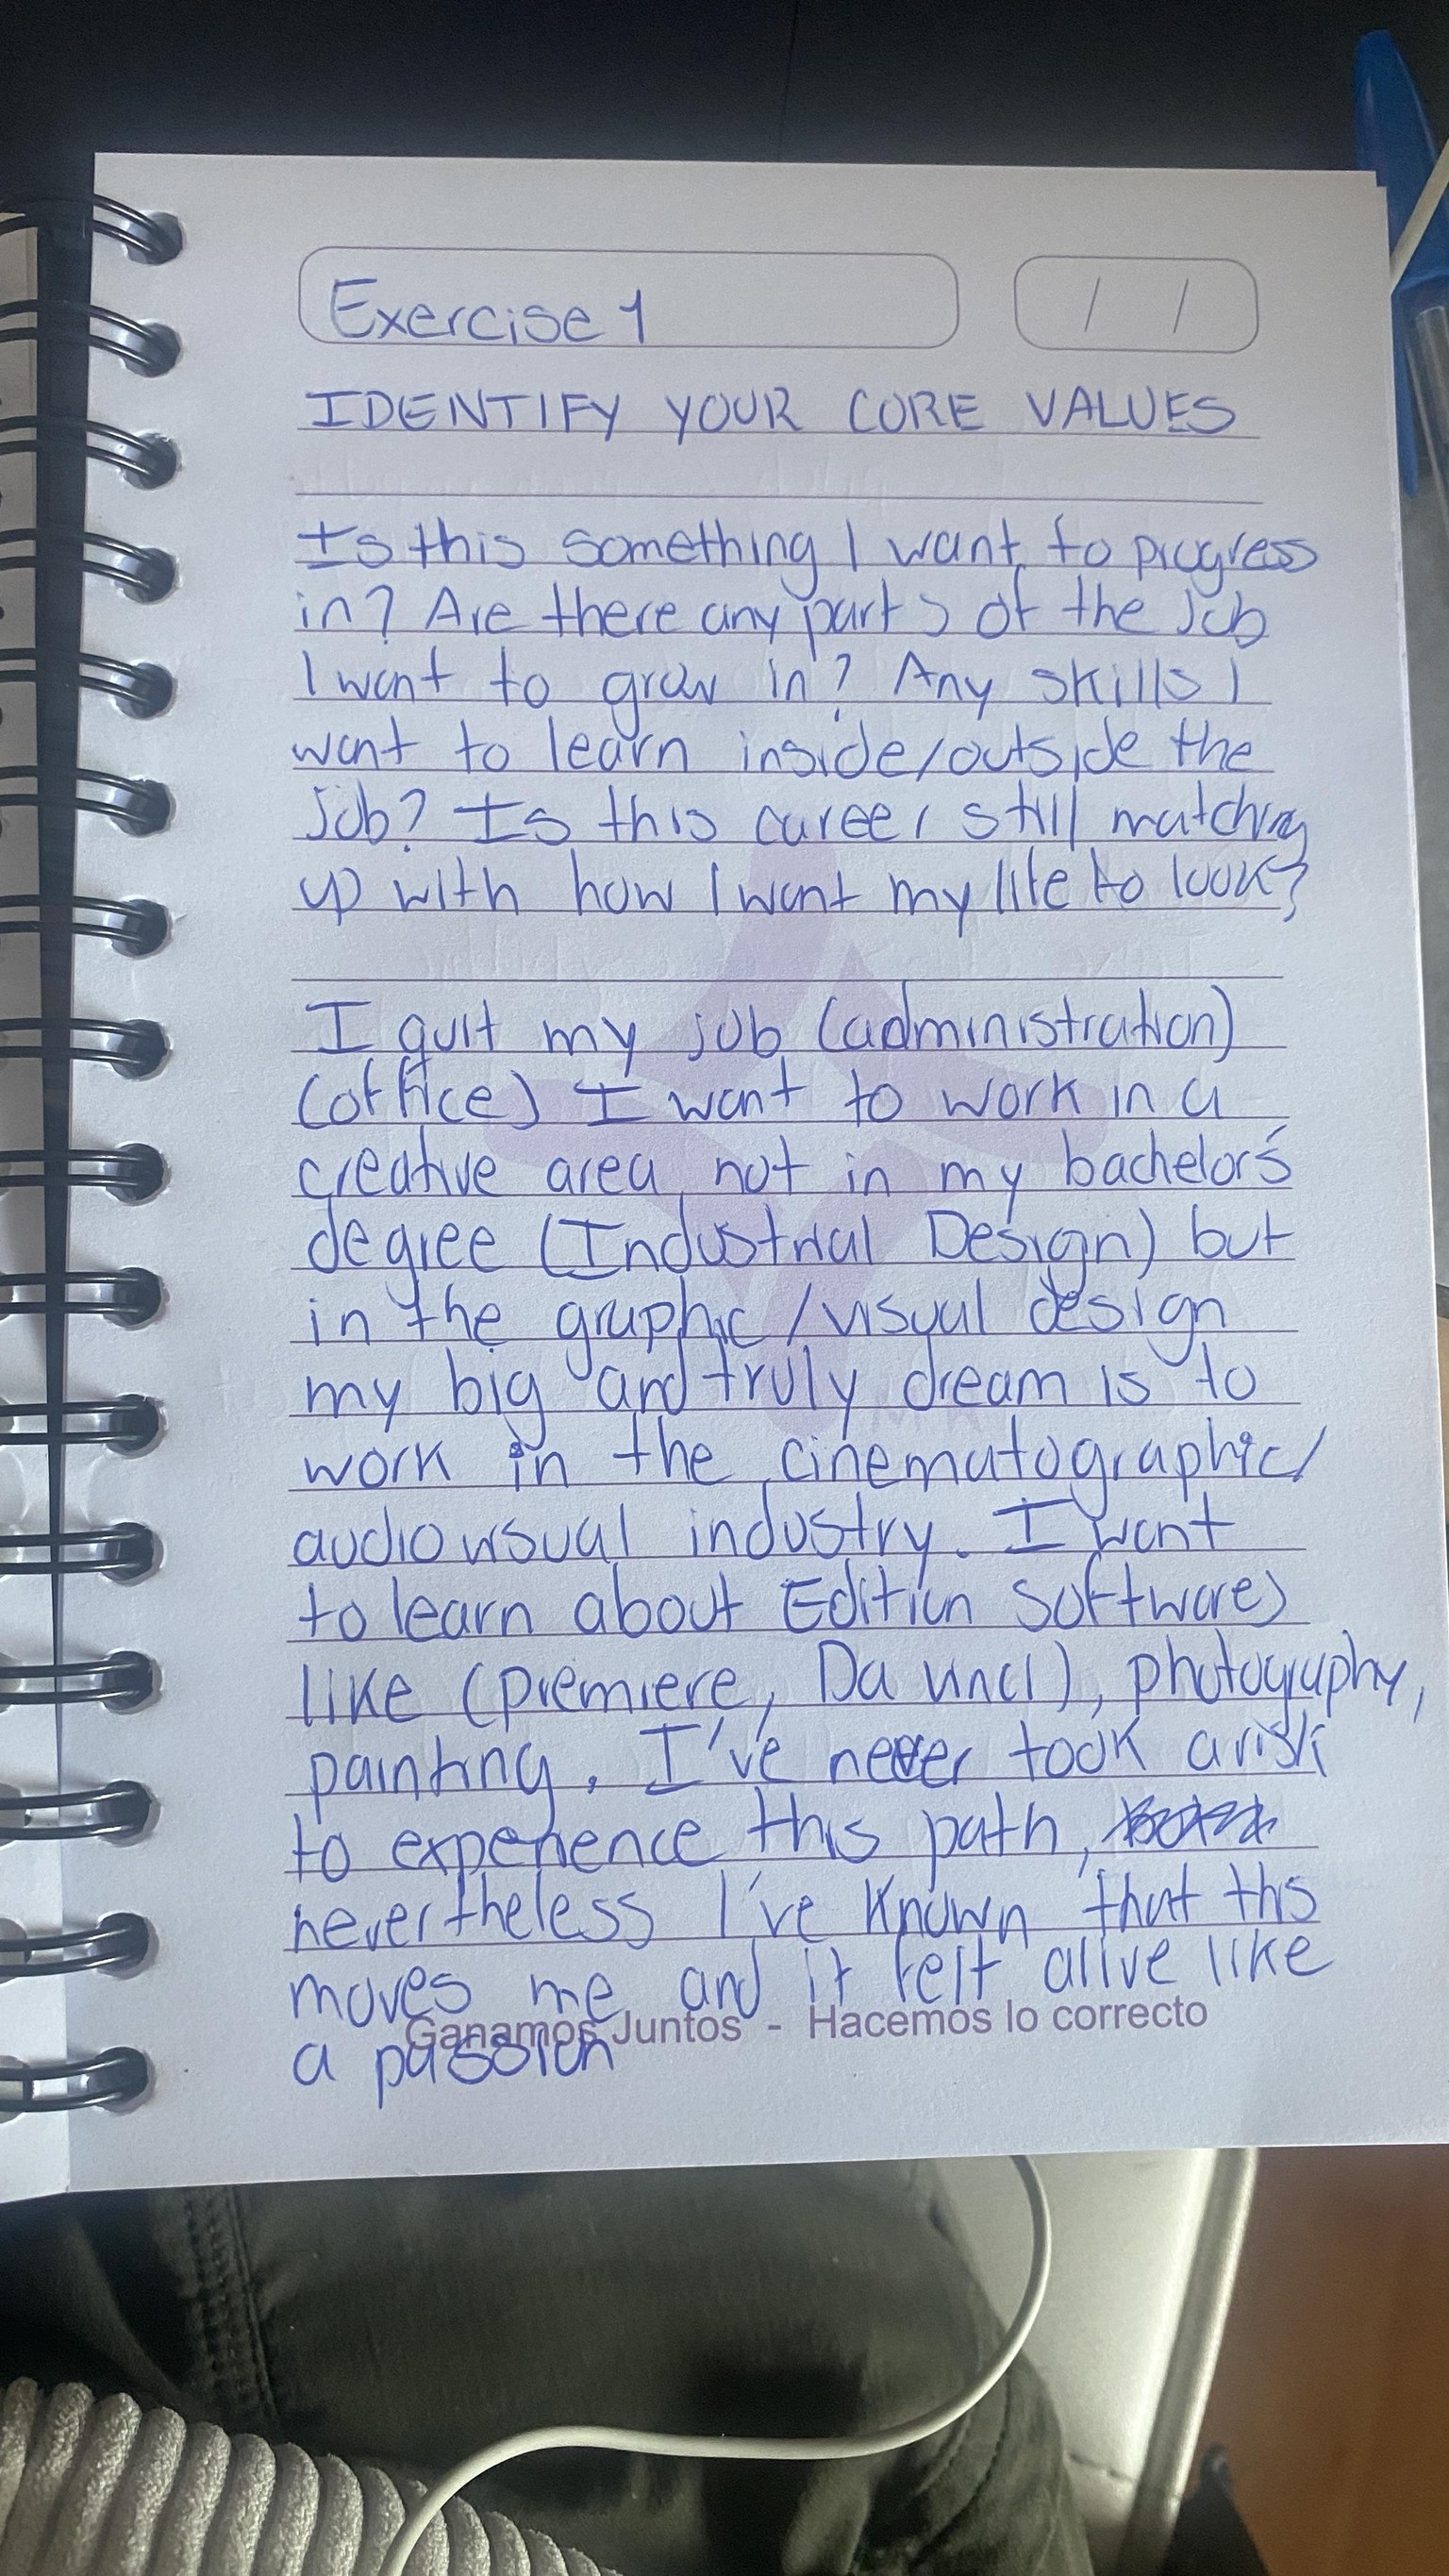 Exercise 1
/ /
IDENTIFY YOUR CORE VALUES
Is this something I want to progress
in? Are there any parts of the Job
I want to grow in? Any skills I
want to learn inside/outside the
Job? Is this career still matching
up with how I want my life to look?
I quit my job (administration)
(office) I want to work in a
creative area, not in my bachelor's
degree (Industrial Design) but
in the graphic/visual design
my big and truly dream is to
work in the cinematographic/
audiovisual industry. I want
to learn about Edition softwares
like (premiere, Da Vinci), photography,
painting. I've never took a risk
to experience this path,
nevertheless I've known that this
moves me and it felt alive like
Ganamos Juntos - Hacemos lo correcto
a passion